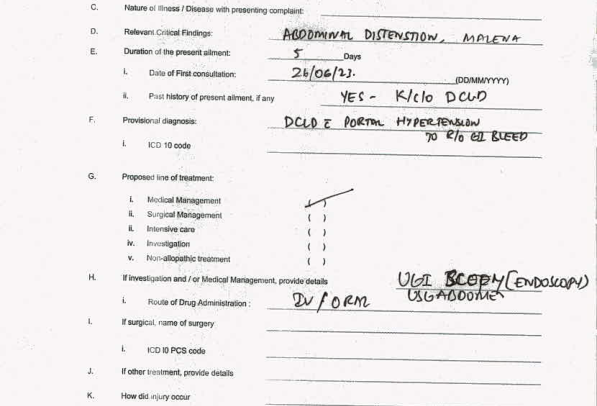 C. Nature of Illness / Disease with presenting complaint:
D. Relevant Critical Findings: ABDOMINAL DISTENSTION, MALENA
E. Duration of the present ailment: 5 Days
i. Date of First consultation: 26/06/23. (DD/MM/YYYY)
ii. Past history of present ailment, if any YES - K/c/o DCLD
F. Provisional diagnosis: DCLD c PORTAL HYPERTENSION
TO R/O GI BLEED
i. ICD 10 code
G. Proposed line of treatment:
i. Medical Management ( )
ii. Surgical Management ( )
ii. Intensive care ( )
iv. Investigation ( )
v. Non-allopathic treatment ( )
H. If investigation and / or Medical Management, provide details UGI SCOPY (ENDOSCOPY)
USG ABDOMEN
i. Route of Drug Administration : IV / ORAL
I. If surgical, name of surgery
i. ICD I0 PCS code
J. If other treatment, provide details
K. How did injury occur